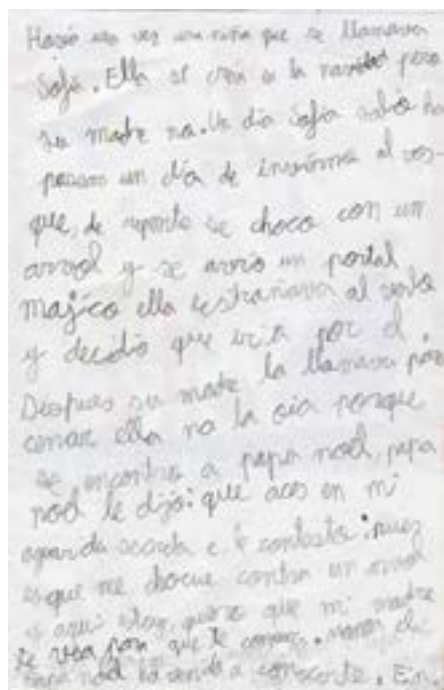 Había una vez una niña que se llamava
Sofia. Ella si creia en la navidad pero
su madre no. Un dia Sofia salió ha
paseas un día de invierno al vos-
que, de repente se choco con un
arvol y se avrio un portal
majico ella estrañava al verlo
y decidio que iria por el.
Despues su madre la llamava para
cenar ella no la oia porque
se encontro a papa noel, papa
noel le dijo: que aces en mi
le contesto: nuez
es que me choque contra un arvol
y aqui estoy, quiero que mi madre
te vea para que te conosca.
papa noel ha conocerte. En